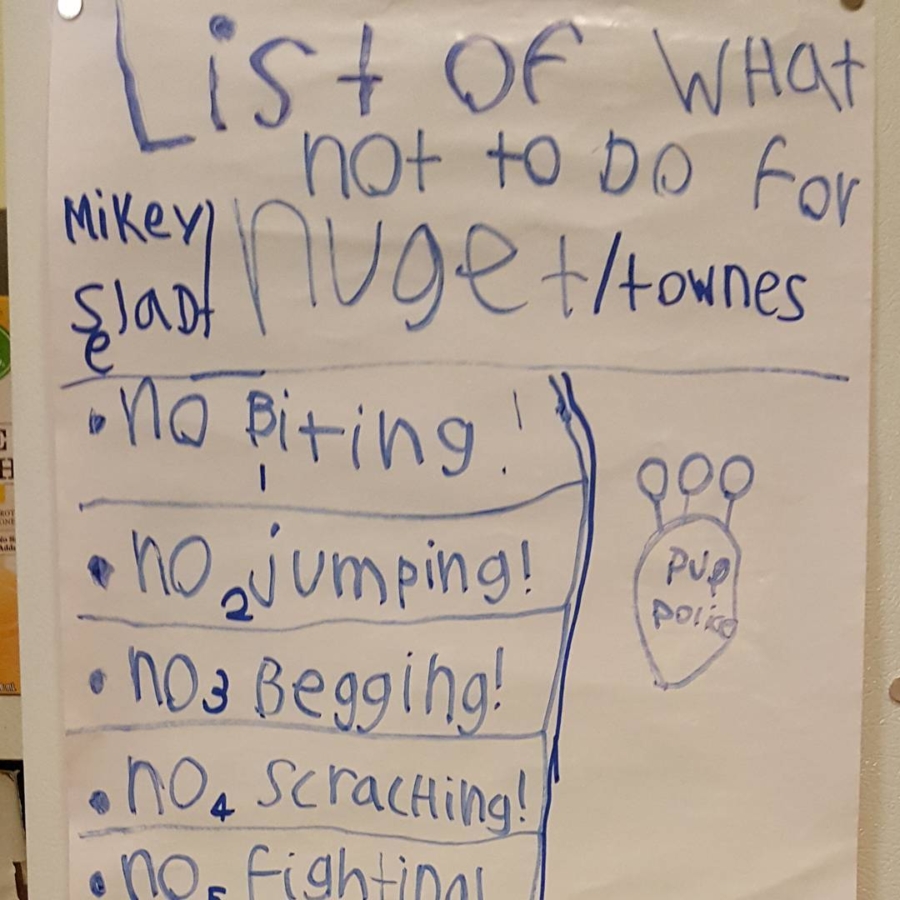 List of What
not to Do For
Mikey/
Slade/
nuget/townes
• no Biting!
1
• no 2 jumping!
• no 3 Begging!
• no 4 Scraching!
• no 5 Fighting!
PUP
Police